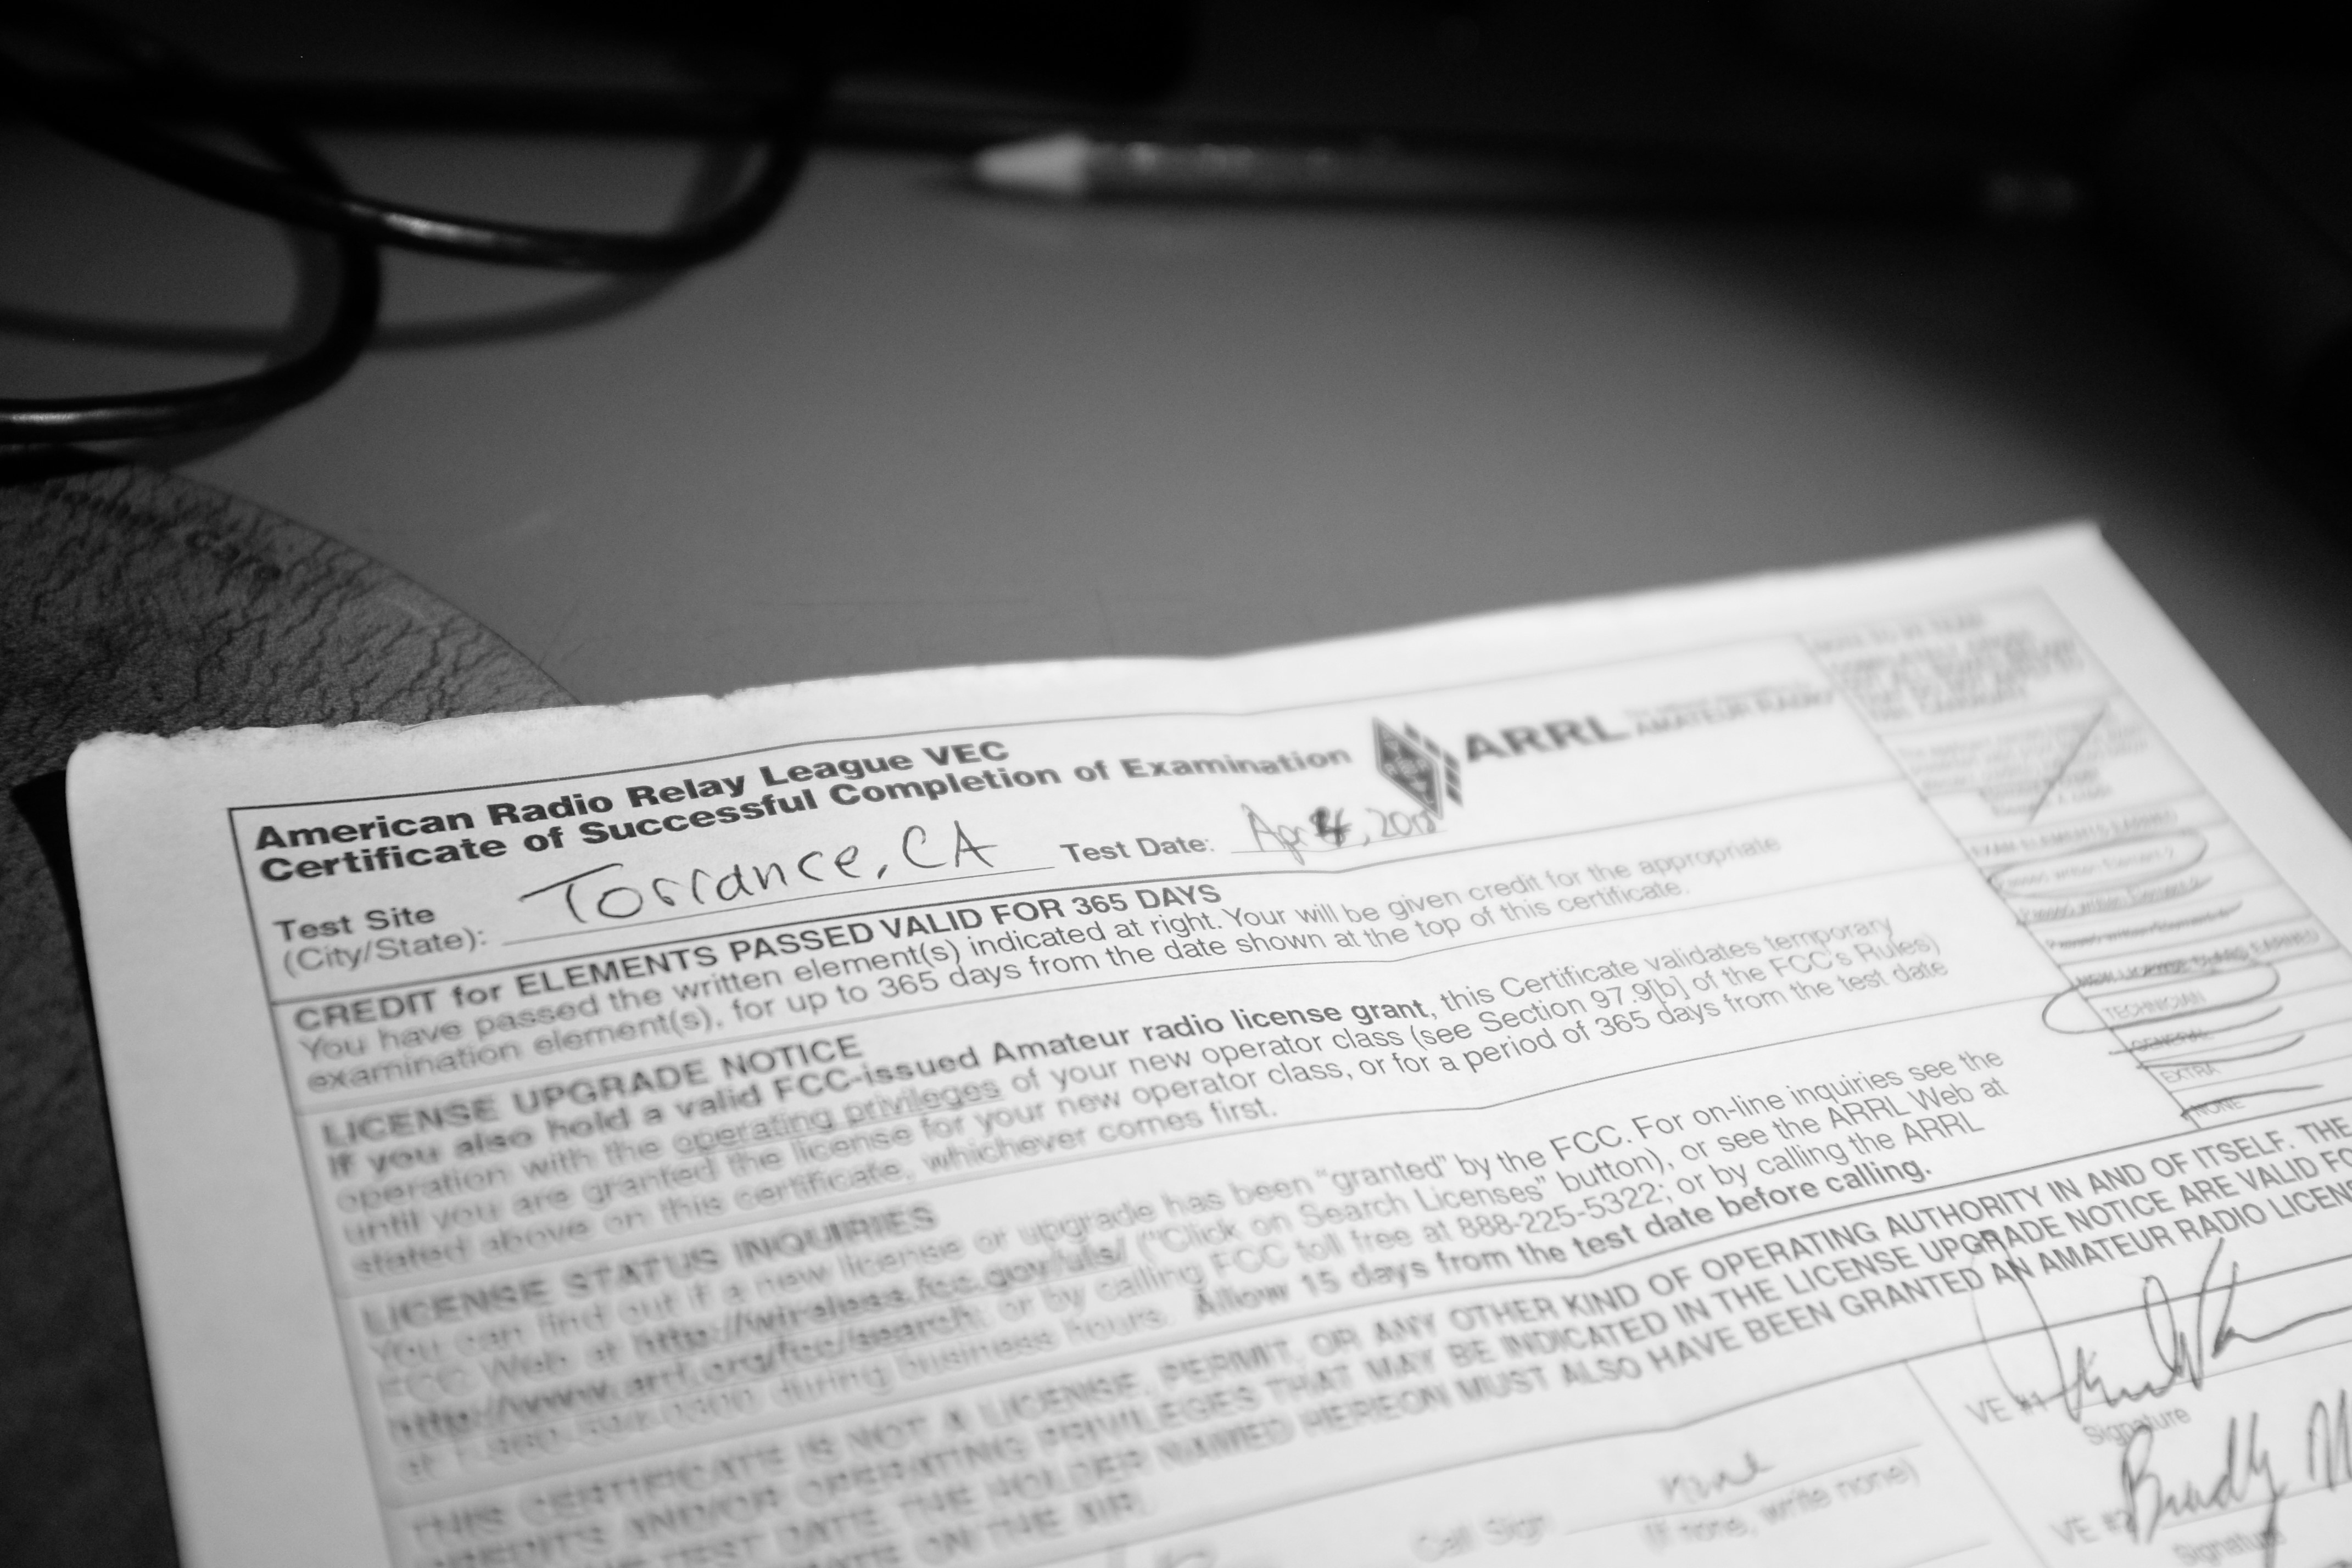 American Radio Relay League VEC
Certificate of Successful Completion of Examination
ARRL
AMATEUR RADIO
Test Site
(City/State):
Torrance, CA
Test Date:
CREDIT for ELEMENTS PASSED VALID FOR 365 DAYS
You have passed the written element(s) indicated at right. Your will be given credit for the appropriate
examination element(s), for up to 365 days from the date shown at the top of this certificate.
LICENSE UPGRADE NOTICE
If you also hold a valid FCC-issued Amateur radio license grant, this Certificate validates temporary
operation with the operating privileges of your new operator class (see Section 97.9[b] of the FCC's Rules)
until you are granted the license for your new operator class, or for a period of 365 days from the test date
stated above on this certificate, whichever comes first.
LICENSE STATUS INQUIRIES
You can find out if a new license or upgrade has been "granted" by the FCC. For on-line inquiries see the
FCC Web at http://wireless.fcc.gov/uls/ ("Click on Search Licenses" button), or see the ARRL Web at
http://www.arrl.org/fcc/search; or by calling FCC toll free at 888-225-5322; or by calling the ARRL
at 1-860-594-0300 during business hours. Allow 15 days from the test date before calling.
THIS CERTIFICATE IS NOT A LICENSE, PERMIT, OR ANY OTHER KIND OF OPERATING AUTHORITY IN AND OF ITSELF. THE
CREDITS AND/OR OPERATING PRIVILEGES THAT MAY BE INDICATED IN THE LICENSE UPGRADE NOTICE ARE VALID
TEST DATE. THE HOLDER NAMED HEREON MUST ALSO HAVE BEEN GRANTED AN AMATEUR RADIO
ON THE AIR.
EXAM ELEMENTS EARNED
NEW LICENSE CLASS EARNED
TECHNICIAN
GENERAL
EXTRA
NONE
Call Sign
none
(If none, write none)
VE #1
Signature
VE #2
Brady
Signature